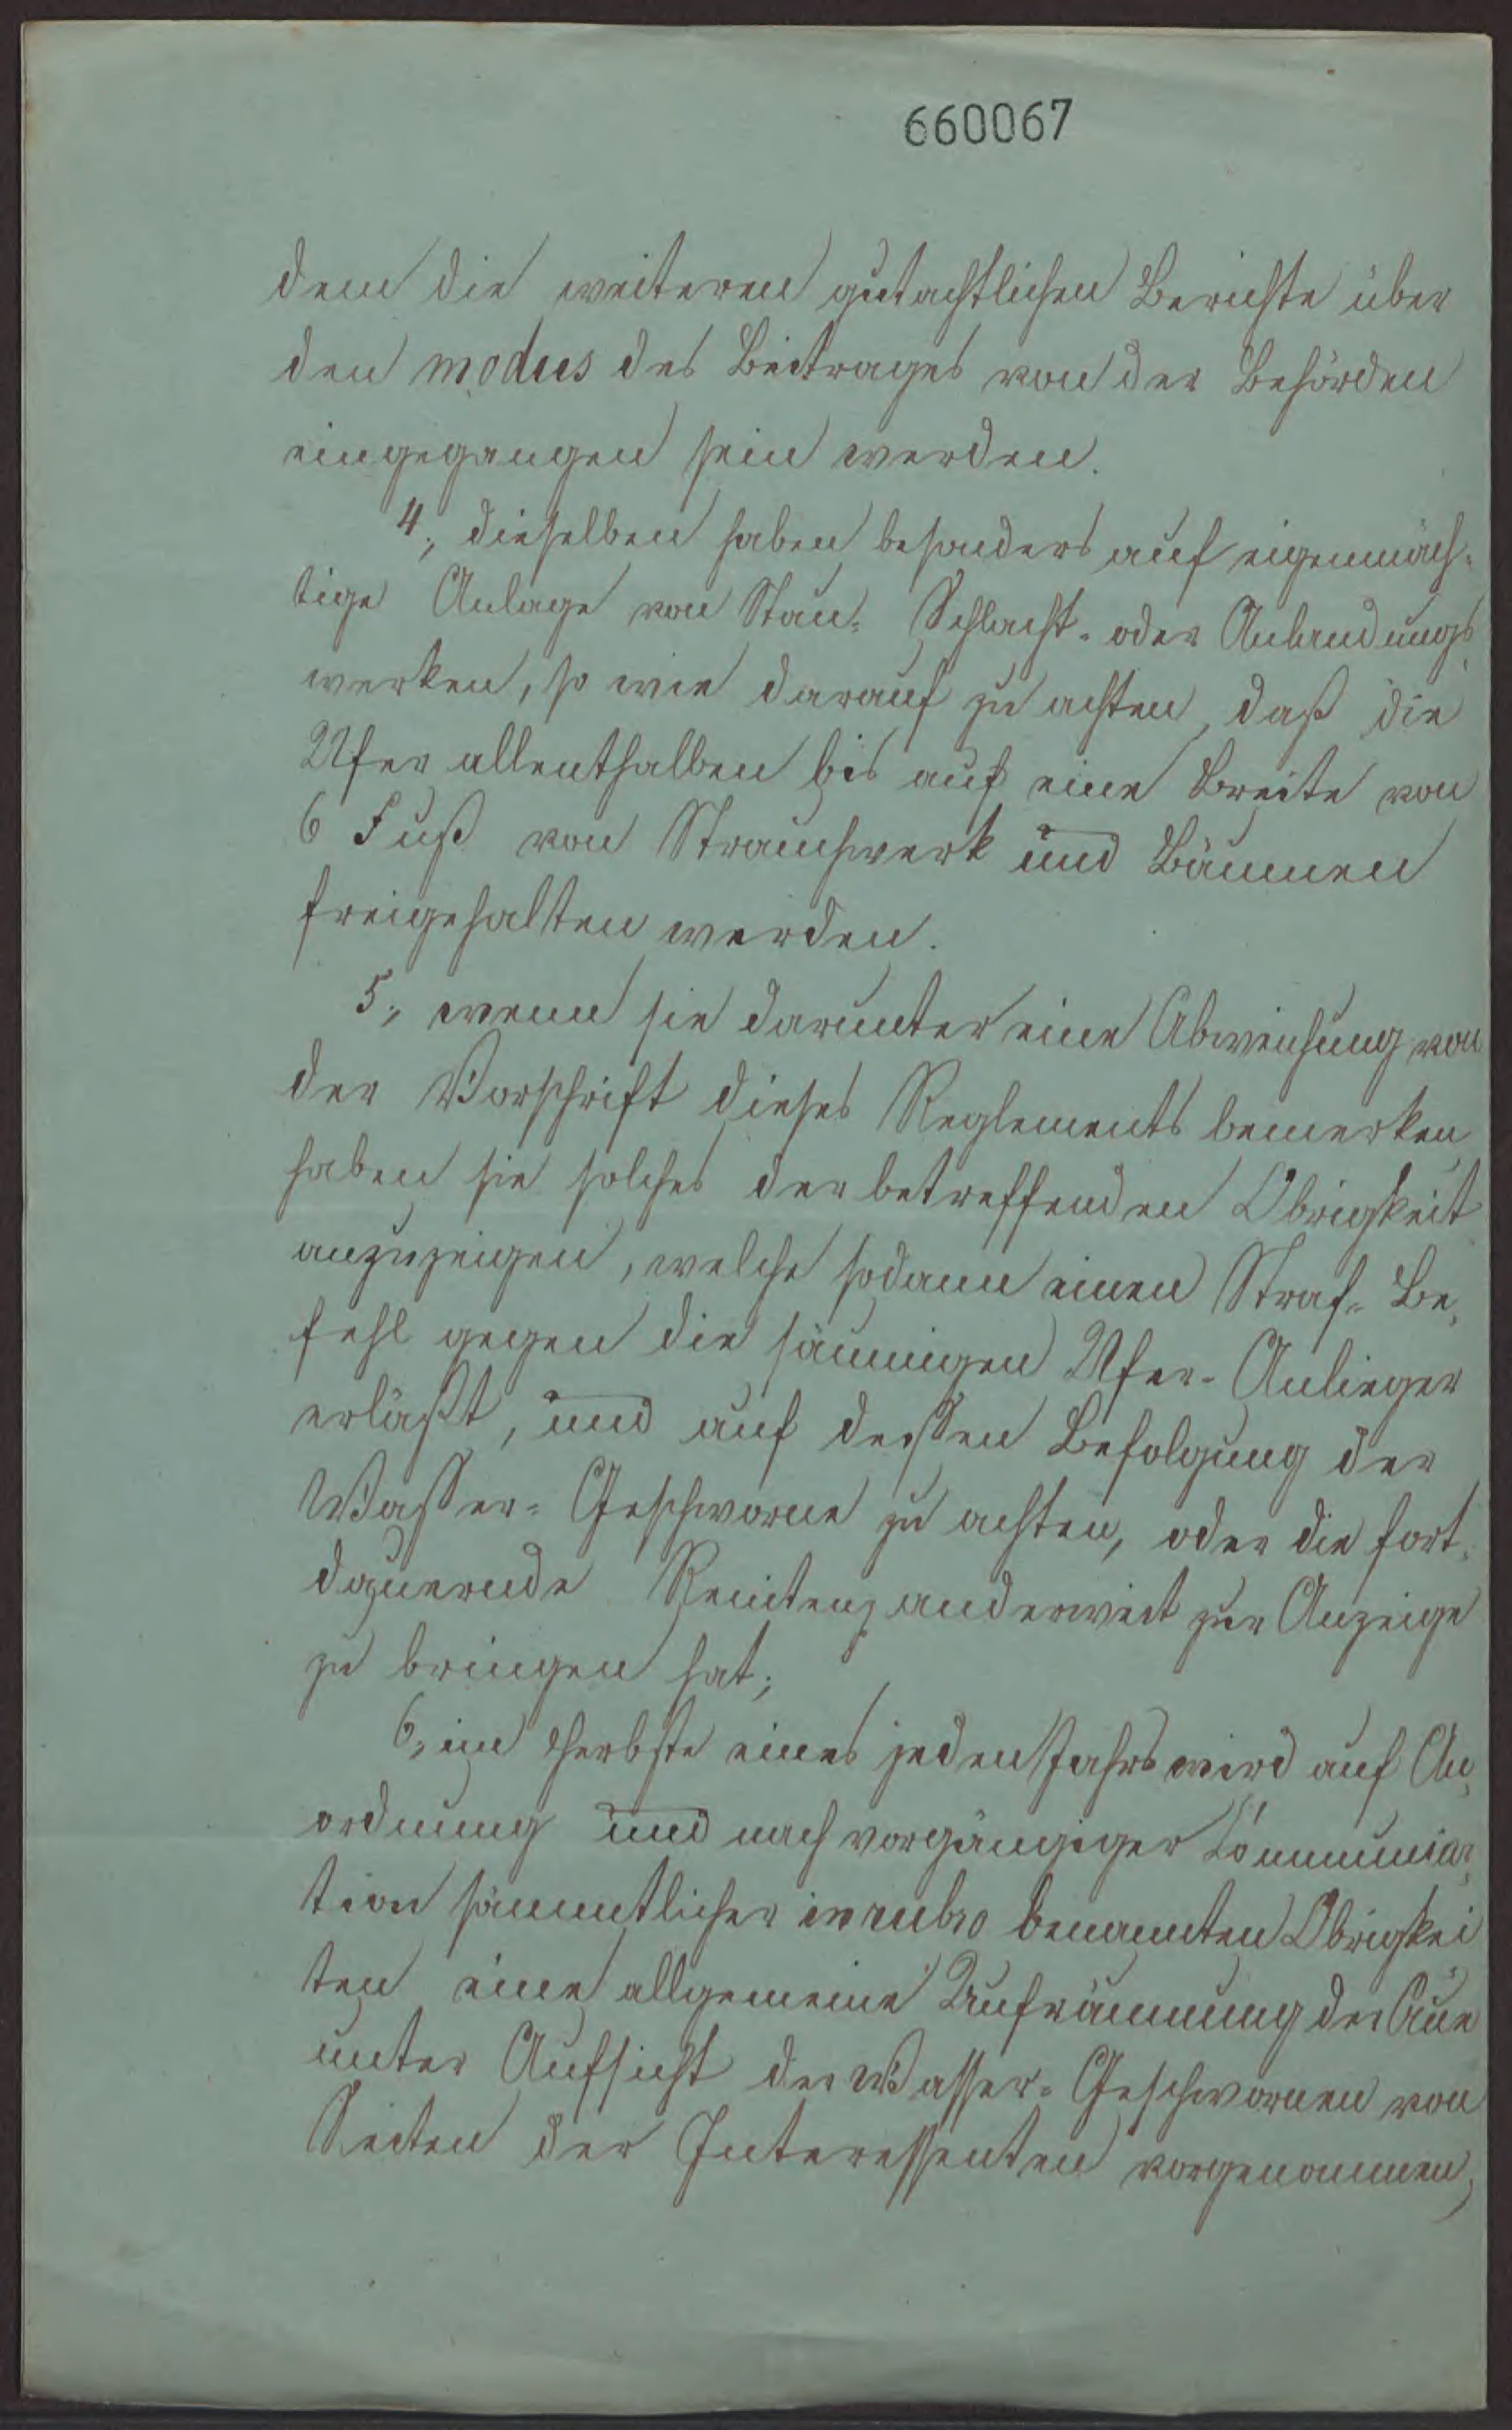 660067
dem die weiteren gutachtlichen Berichte über
den modus des Beitrages von der Behörden
eingegangen sein werden.
4., dieselben haben besonders auf eigenmäch-
tige Anlage von Stau- Schlacht- oder Anlandungs
werken, so wie darauf zu achten, daß die
Ufer allenthalben bis auf eine Breite von
6 Fuß von Strauchwerk und Bäumen
freigehalten werden.
5., wenn sie darunter eine Abweichung von
der Vorschrift dieses Reglements bemerken,
haben sie solches der betreffenden Obrigkeit
anzuzeigen, welche sodann einen Straf- Be-
fehl gegen die säumigen Ufer- Anlieger
erläßt, und auf dessen Befolgung der
Wasser- Geschworne zu achten, oder die fort-
dauernde Renitenz anderweit zur Anzeige
zu bringen hat;
6., im Herbste eines jeden Jahrs wird auf An-
ordnung und nach vorgängiger
tion sämmtlicher in rubro benannten Obrigkei
ten eine allgemeine Aufräumung der Aue
unter Aufsicht der Wasser- Geschwornen von
Seiten der Interessenten vorgenommen,